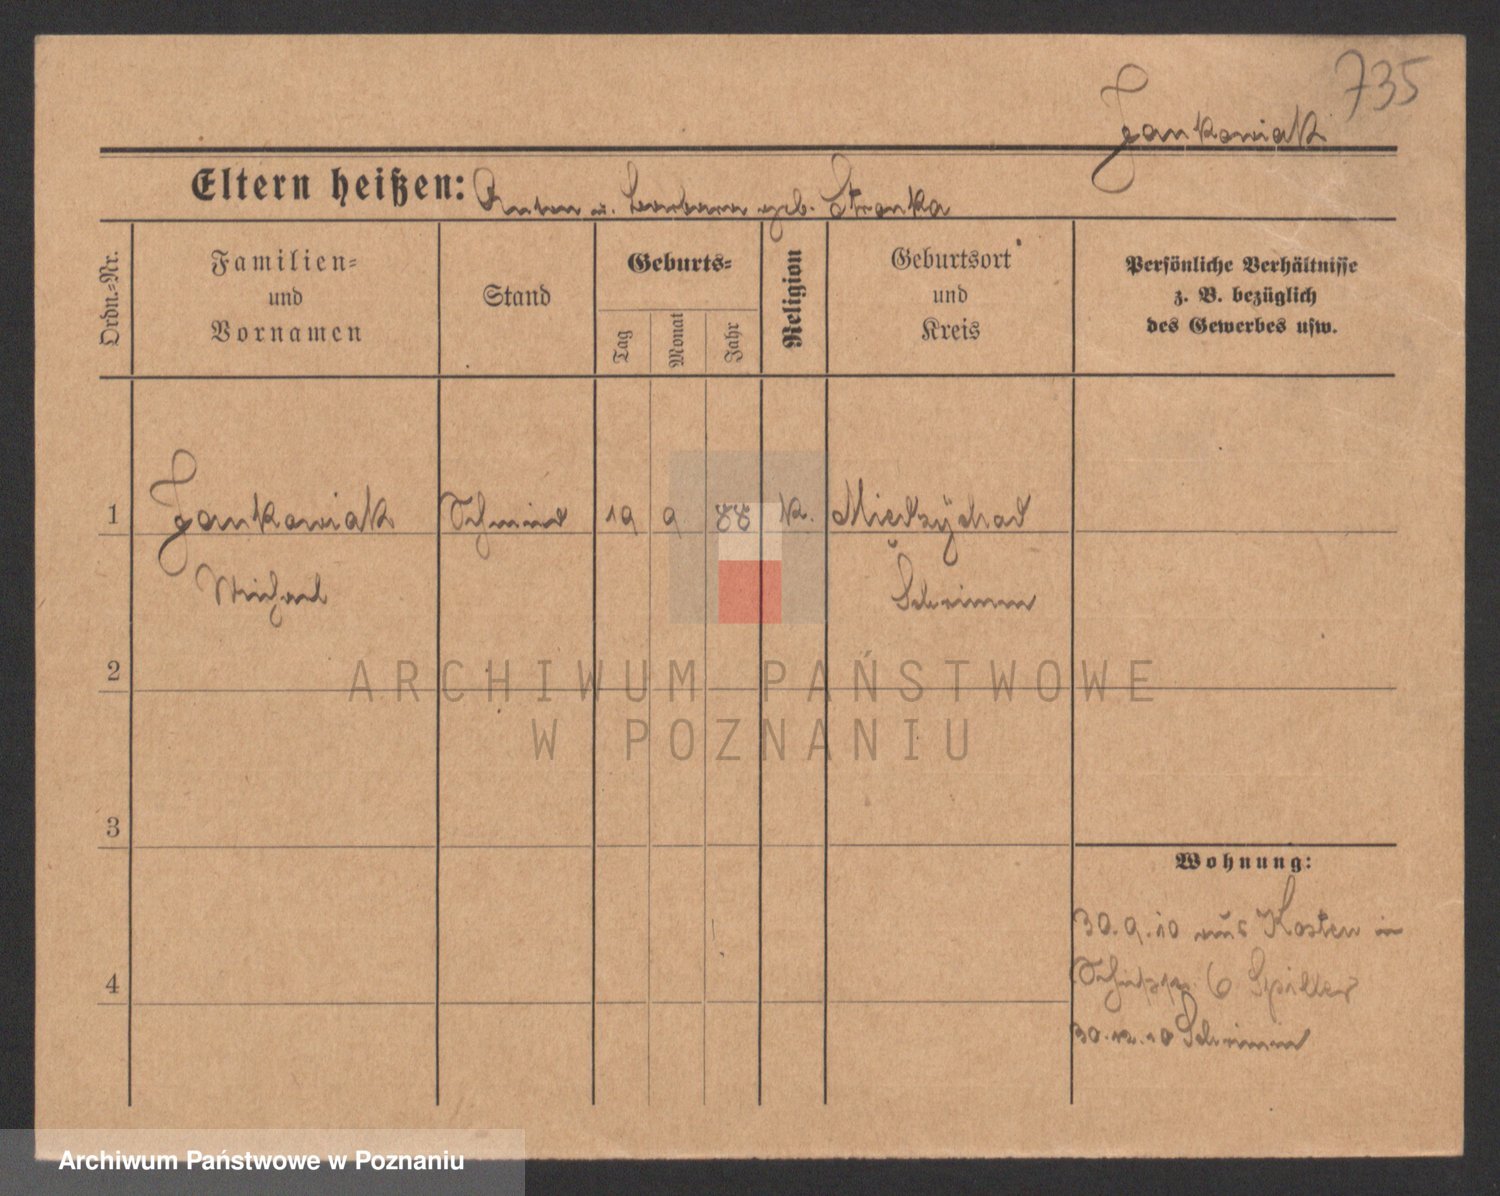 735
Jankowiak
Eltern heißen: Anton u. Barbara geb. Stronka
Ordn.-Nr.
Familien-
und
Vornamen
Stand
Geburts-
Tag
Monat
Jahr
Religion
Geburtsort
und
Kreis
Persönliche Verhältnisse
z. B. bezüglich
des Gewerbes usw.
1 Jankowiak Schmied 19 9 88 k. Miedzychod
Michael Schrimm
2
ARCHIWUM PAŃSTWOWE
W POZNANIU
3
Wohnung:
30.9.10 aus Kosten in
4
6
30.12.10 Schrimm
Archiwum Państwowe w Poznaniu